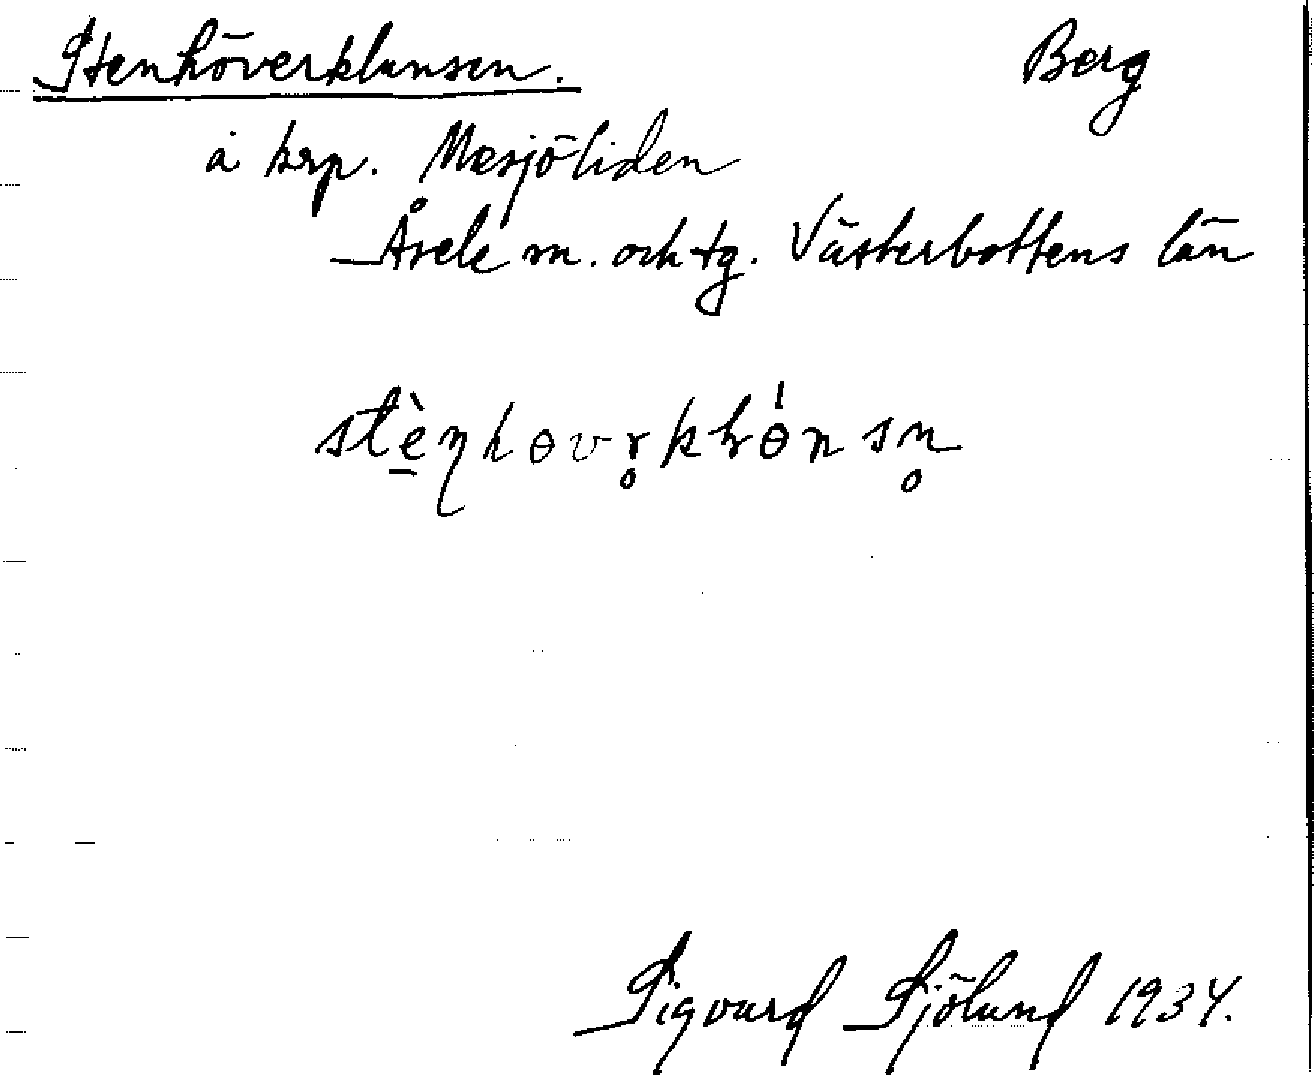 Stenhöverklunsen. Berg
å krp. Mesjöliden
Åsele sn. och tg. Västerbottens län
stèn̥höv
Sigvard Sjölund 1934.